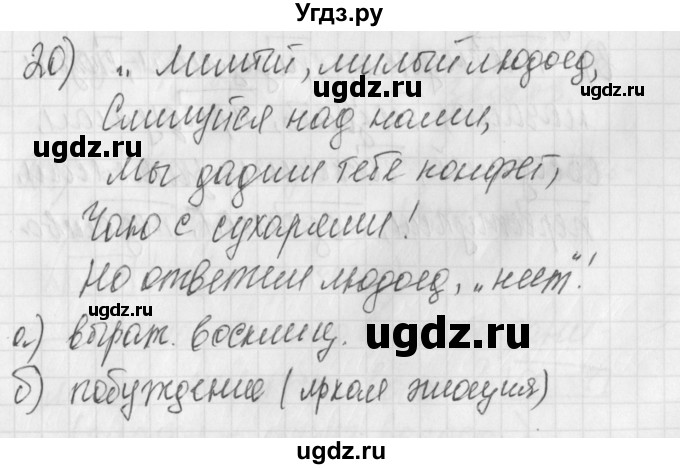 Угдз.ру
20) „Милый, милый людоед,
ugdz.ru
Смилуйся над нами,
ugdz.ru
ugdz.ru
Мы дадим тебе конфет,
Чаю с сухарями!
ugdz.ru
Но ответил людоед, „нет“!
ugdz.ru
а) выраж. восклиц.
ugdz.ru
б) побуждение (яркая эмоция)
ugdz.ru
ugdz.ru